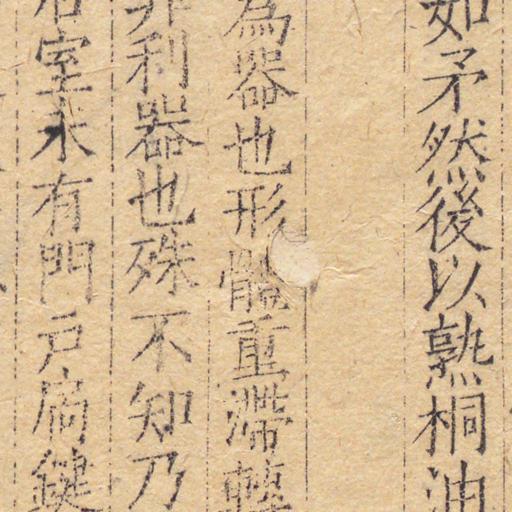 如矛然後以熟桐油
為器也形體重滯轉
非利器也殊不知乃
石室水有門戶扃鍵